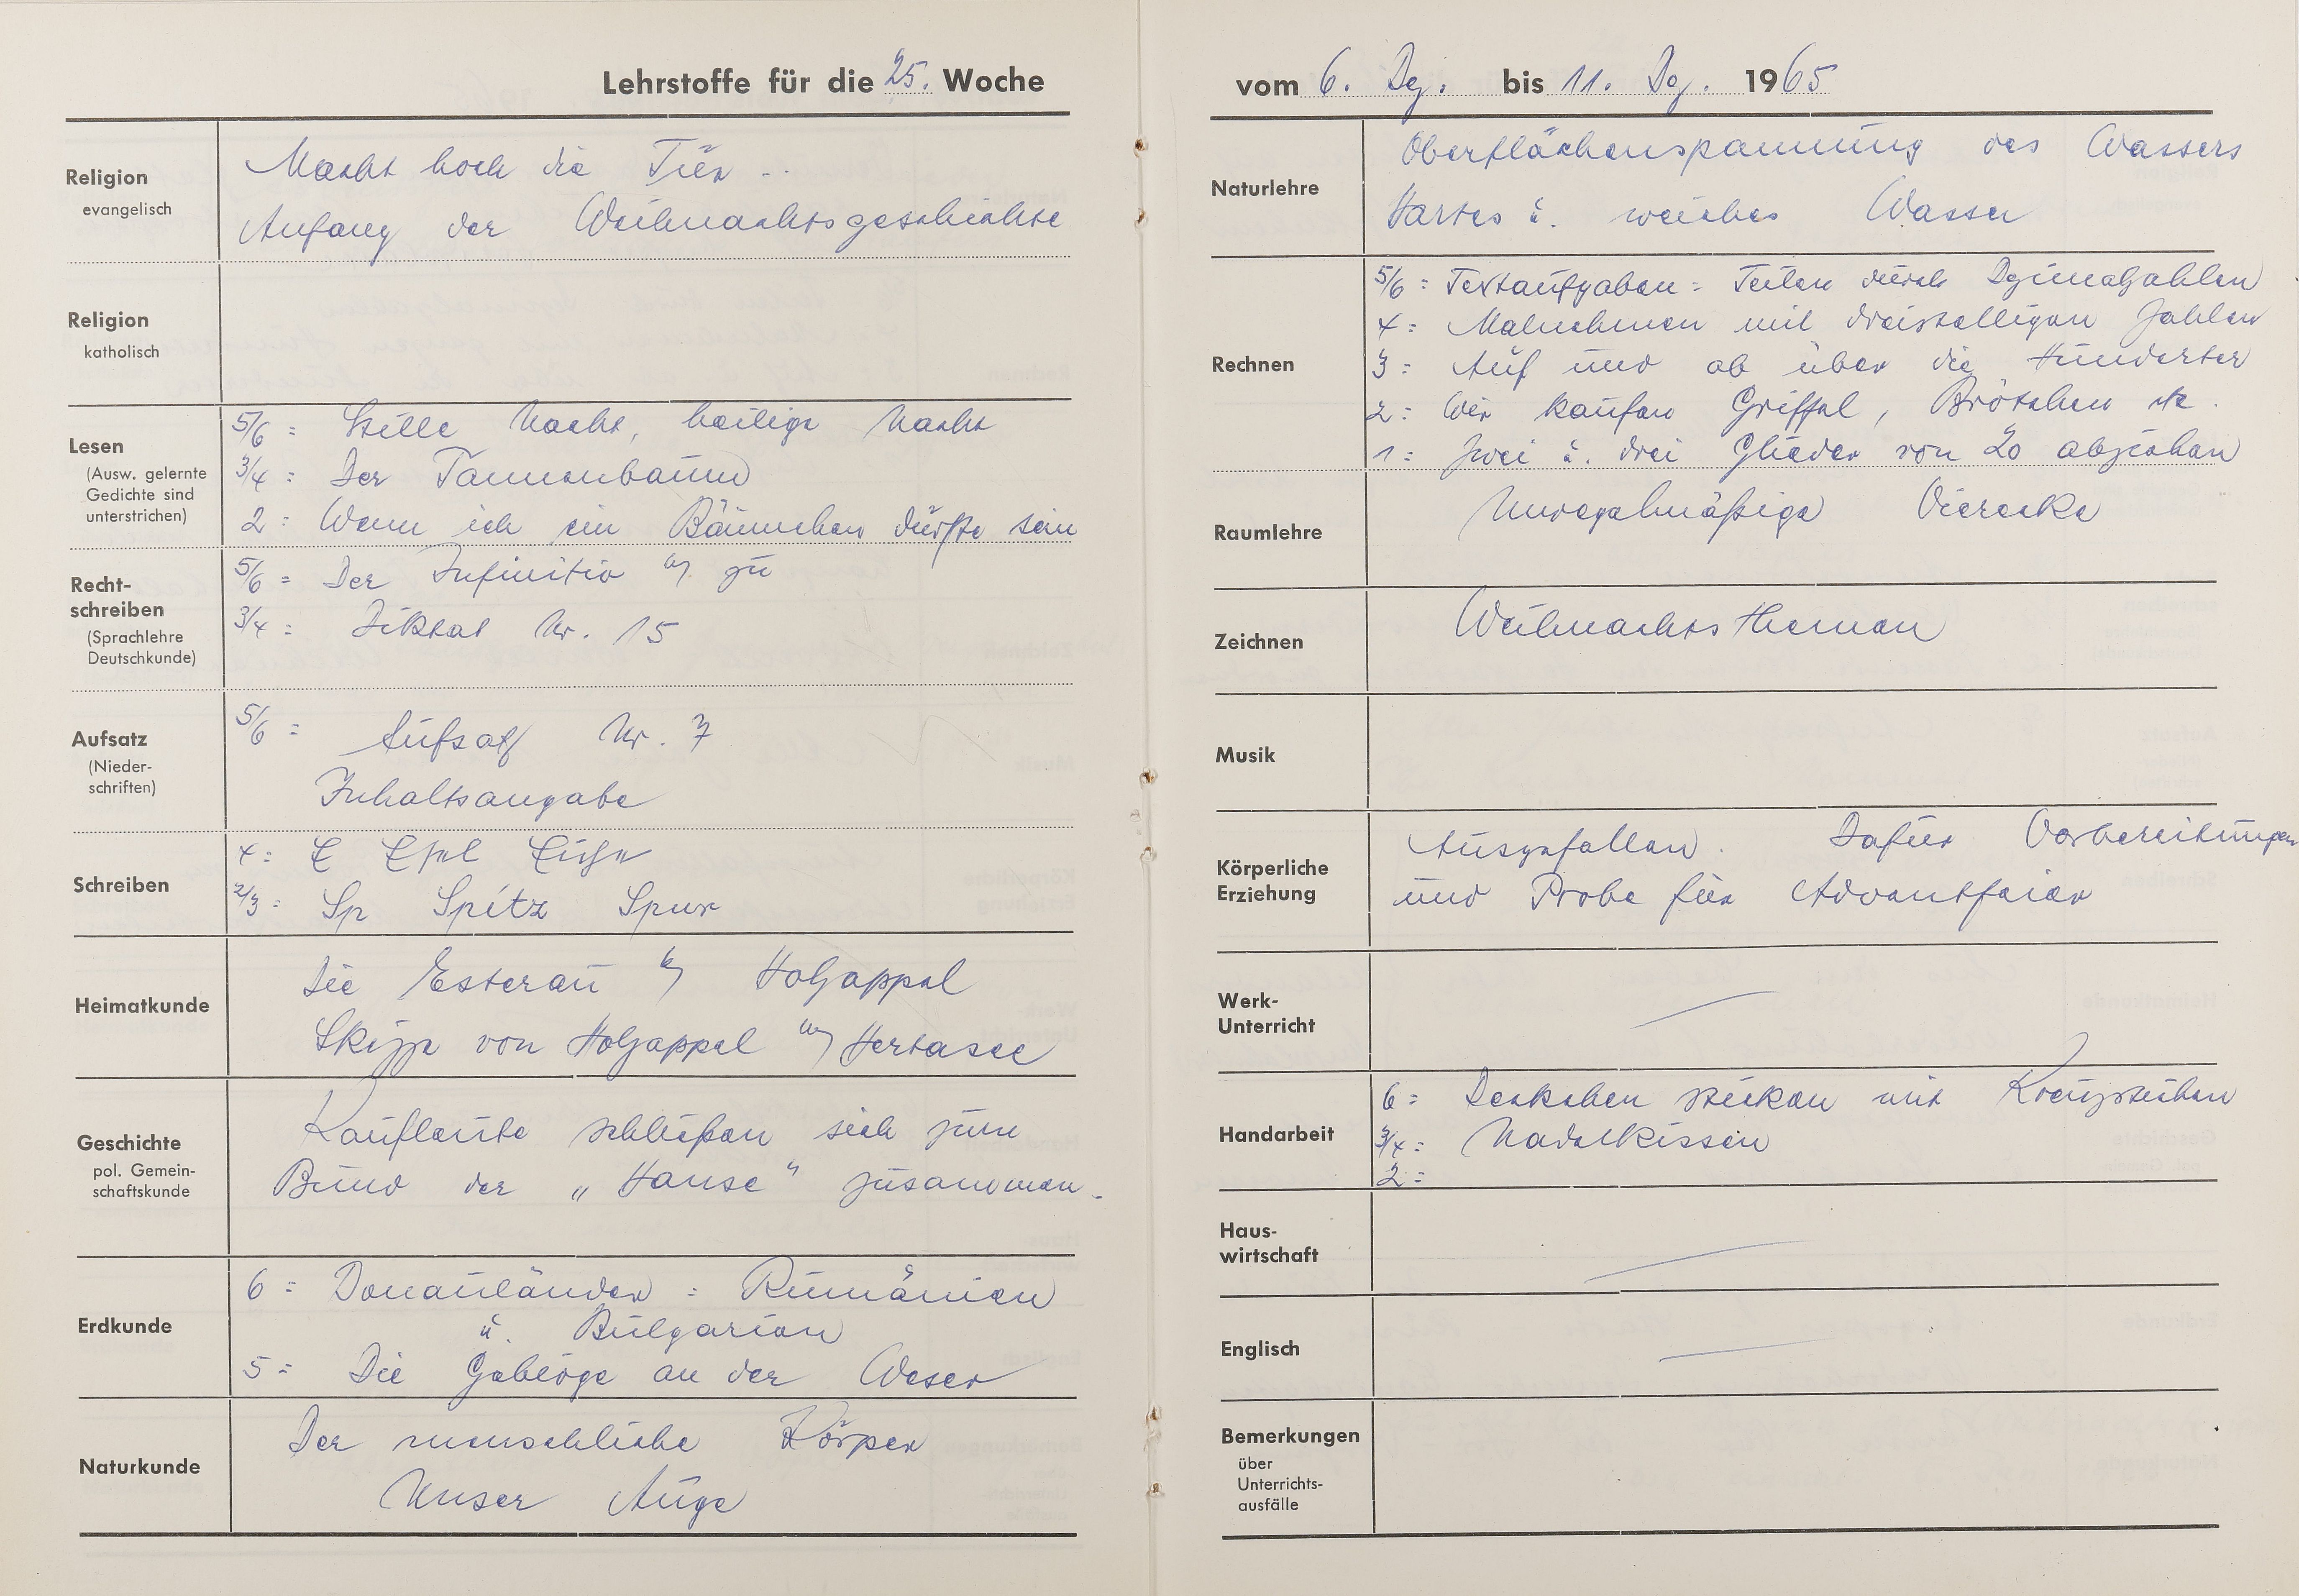 Lehrstoffe für die 25. Woche
Religion
evangelisch
Macht hoch die Tür ..
Anfang der Weihnachtsgeschichte
Religion
katholisch
Lesen
(Ausw. gelernte
Gedichte sind
unterstrichen)
5/6 = Stille Nacht, heilige Nacht
3/4 = Der Tannenbaum
2 = Wenn ich ein Bäumchen dürfte sein
Recht-
schreiben
(Sprachlehre
Deutschkunde)
5/6 = Der Infinitiv m. zu
3/4 = Diktat Nr. 15
Aufsatz
(Nieder-
schriften)
5/6 = Aufsatz Nr. 7
Inhaltsangabe
Schreiben
4 = E Esel
2/3 = Sp Spitz Spur
Heimatkunde
Die Esterau Holzappel
Skizze von Holzappel
Geschichte
pol. Gemein-
schaftskunde
Kaufleute schließen sich zum
Bund der „Hanse" zusammen.
Erdkunde
6 = Donauländer = Rumänien
u. Bulgarien
5 = Die Gebirge an der Weser
Naturkunde
Der menschliche Körper
Unser Auge
vom 6. Dez. bis 11. Dez. 1965
Naturlehre
Oberflächenspannung des Wassers
Hartes u. weiches Wasser
Rechnen
5/6 = Textaufgaben = Teilen durch Dezimalzahlen
4 = Malnehmen mit dreistelligen Zahlen
3 = Auf und ab über die Hunderter
2 = Wir kaufen Griffel, Brötchen etc.
1 = Zwei u. drei Glieder von 20 abziehen
Raumlehre
Unregelmäßige Vierecke
Zeichnen
Weihnachtsthemen
Musik
Körperliche
Erziehung
Ausgefallen. Dafür Vorbereitungen
und Probe für Adventfeier
Werk-
Unterricht
Handarbeit
6 = Deckchen sticken mit Kreuzstichen
3/4 = Nadelkissen
2 =
Haus-
wirtschaft
Englisch
Bemerkungen
über
Unterrichts-
ausfälle